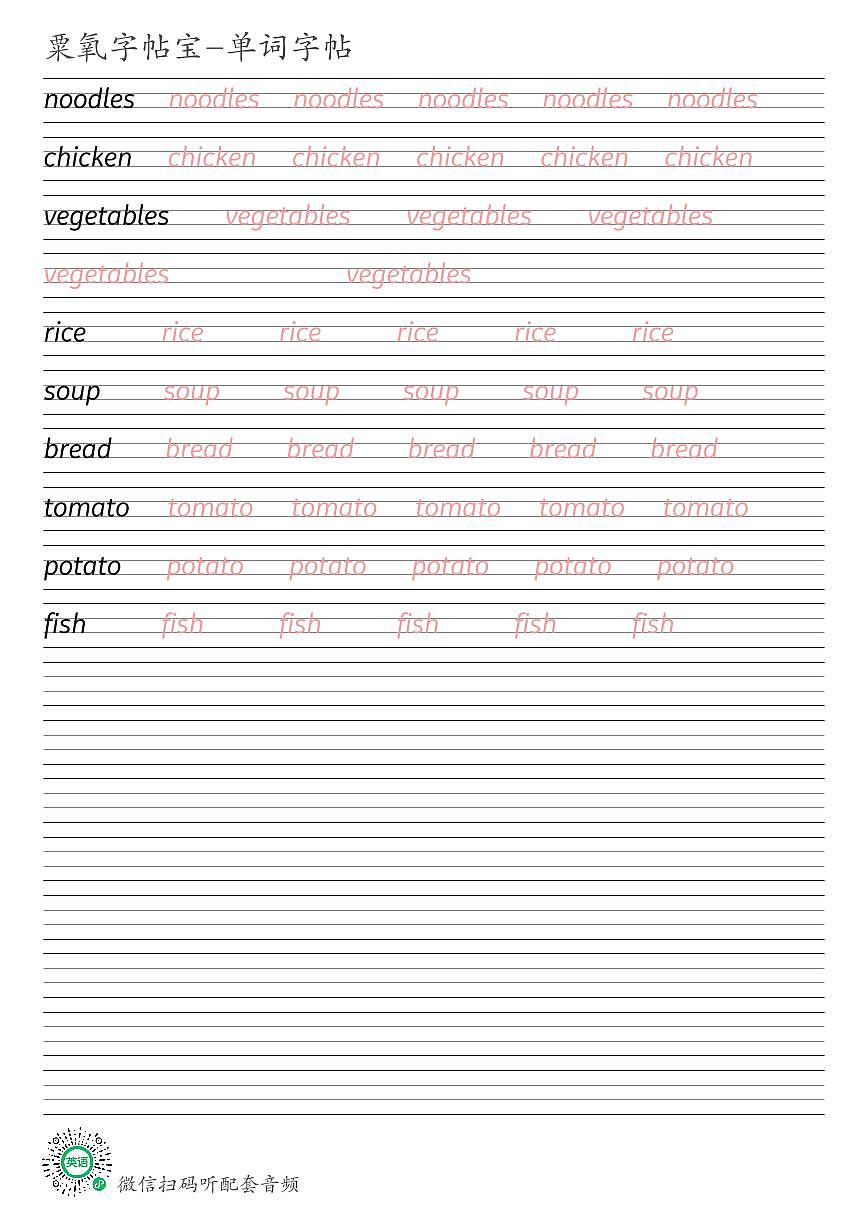 粟氧字帖宝-单词字帖
noodles noodles noodles noodles noodles noodles
chicken chicken chicken chicken chicken chicken
vegetables vegetables vegetables vegetables
vegetables vegetables
rice rice rice rice rice rice
soup soup soup soup soup soup
bread bread bread bread bread bread
tomato tomato tomato tomato tomato tomato
potato potato potato potato potato potato
fish fish fish fish fish fish
英语
微信扫码听配套音频